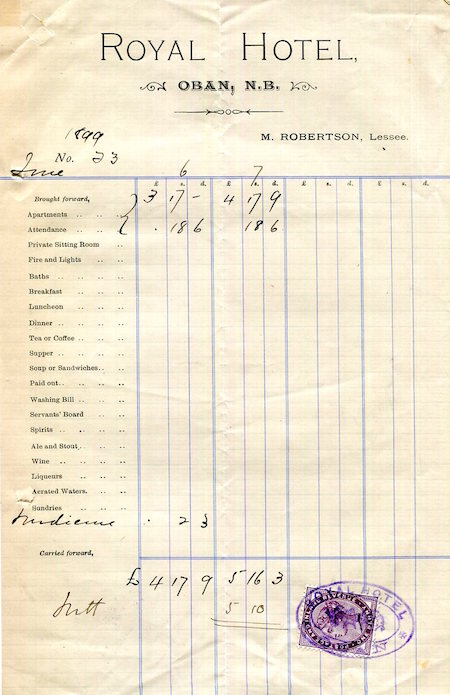 ROYAL HOTEL,
OBAN, N.B.
1899
M. ROBERTSON, Lessee.
No. 23
June 6 7
£ s. d. £ s. d. £ s. d. £ s. d.
Brought forward, 3 17 - 4 17 9
Apartments .. .. ..
Attendance .. .. .. . 18 6 18 6
Private Sitting Room ..
Fire and Lights .. ..
Baths .. .. .. ..
Breakfast .. .. ..
Luncheon .. .. ..
Dinner .. .. .. ..
Tea or Coffee .. .. ..
Supper .. .. .. ..
Soup or Sandwiches.. ..
Paid out.. .. .. ..
Washing Bill .. .. ..
Servants' Board .. ..
Spirits .. .. .. ..
Ale and Stout.. .. ..
Wine .. .. .. ..
Liqueurs .. .. ..
Aerated Waters. .. ..
Sundries .. .. ..
Medicine . 2 3
Carried forward,
£ 4 17 9 5 16 3
5 10
ROYAL HOTEL